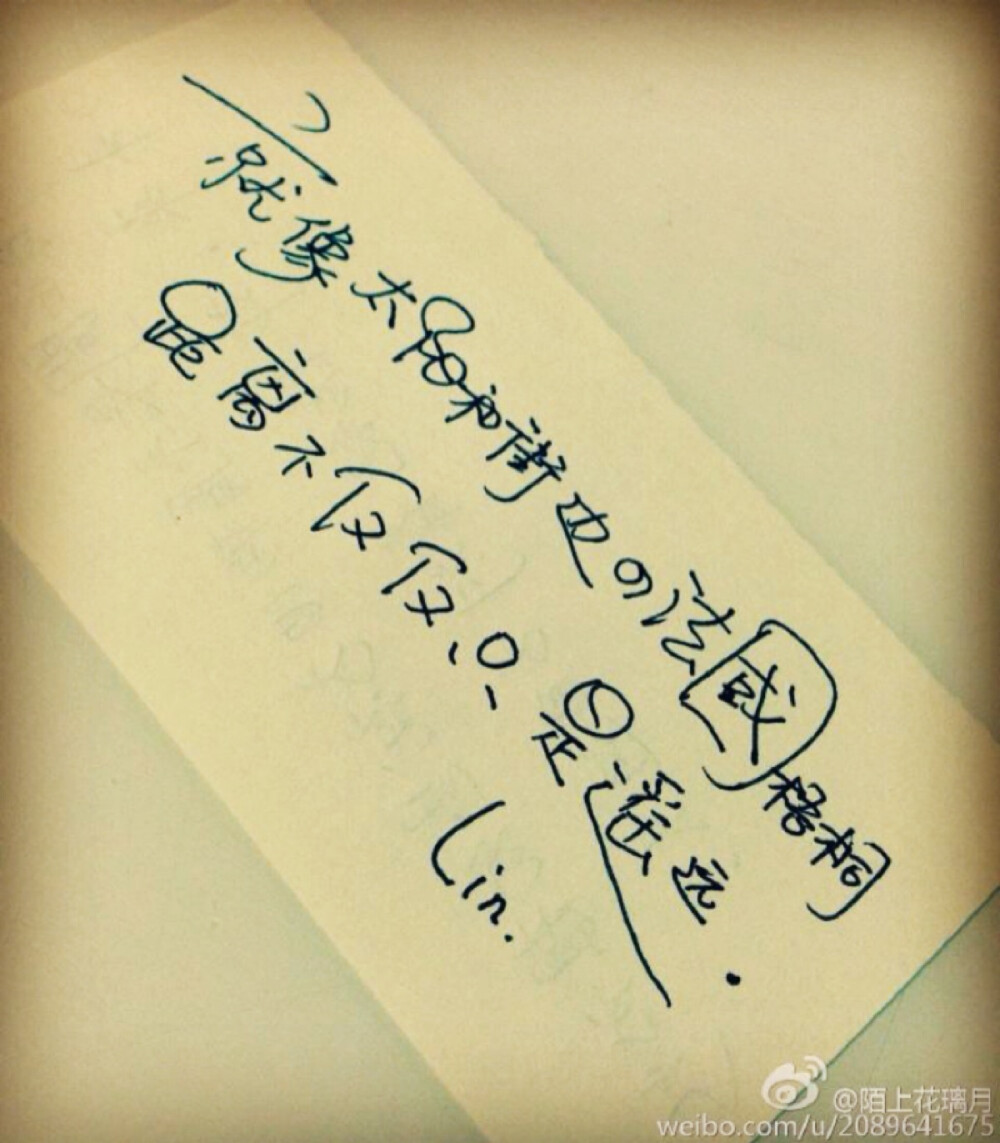 就像太阳和街边的法國梧桐
距离不仅仅只是遥远.
Lin.
@陌上花璃月
weibo.com/u/2089641675